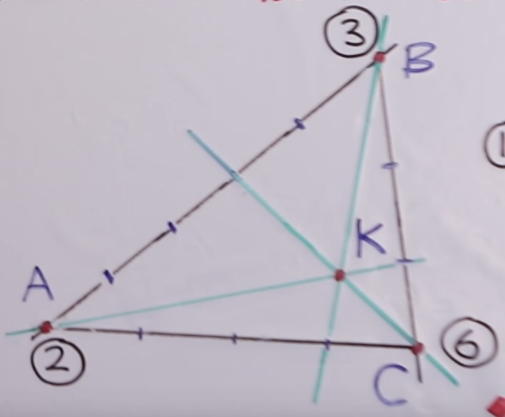 ③
B
①
K
A
②
⑥
C